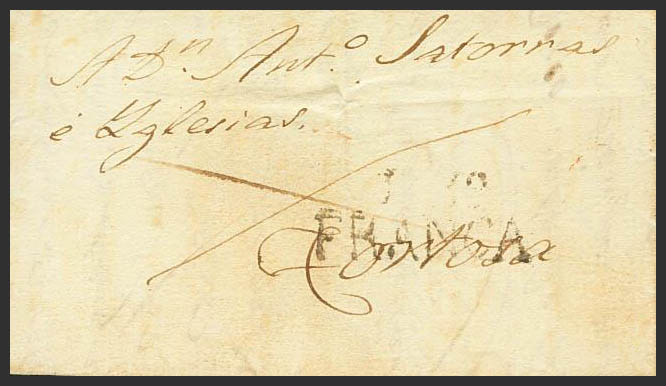 A Dn. Anto. Satorras
é Yglesias.
FRANCA
Tortosa